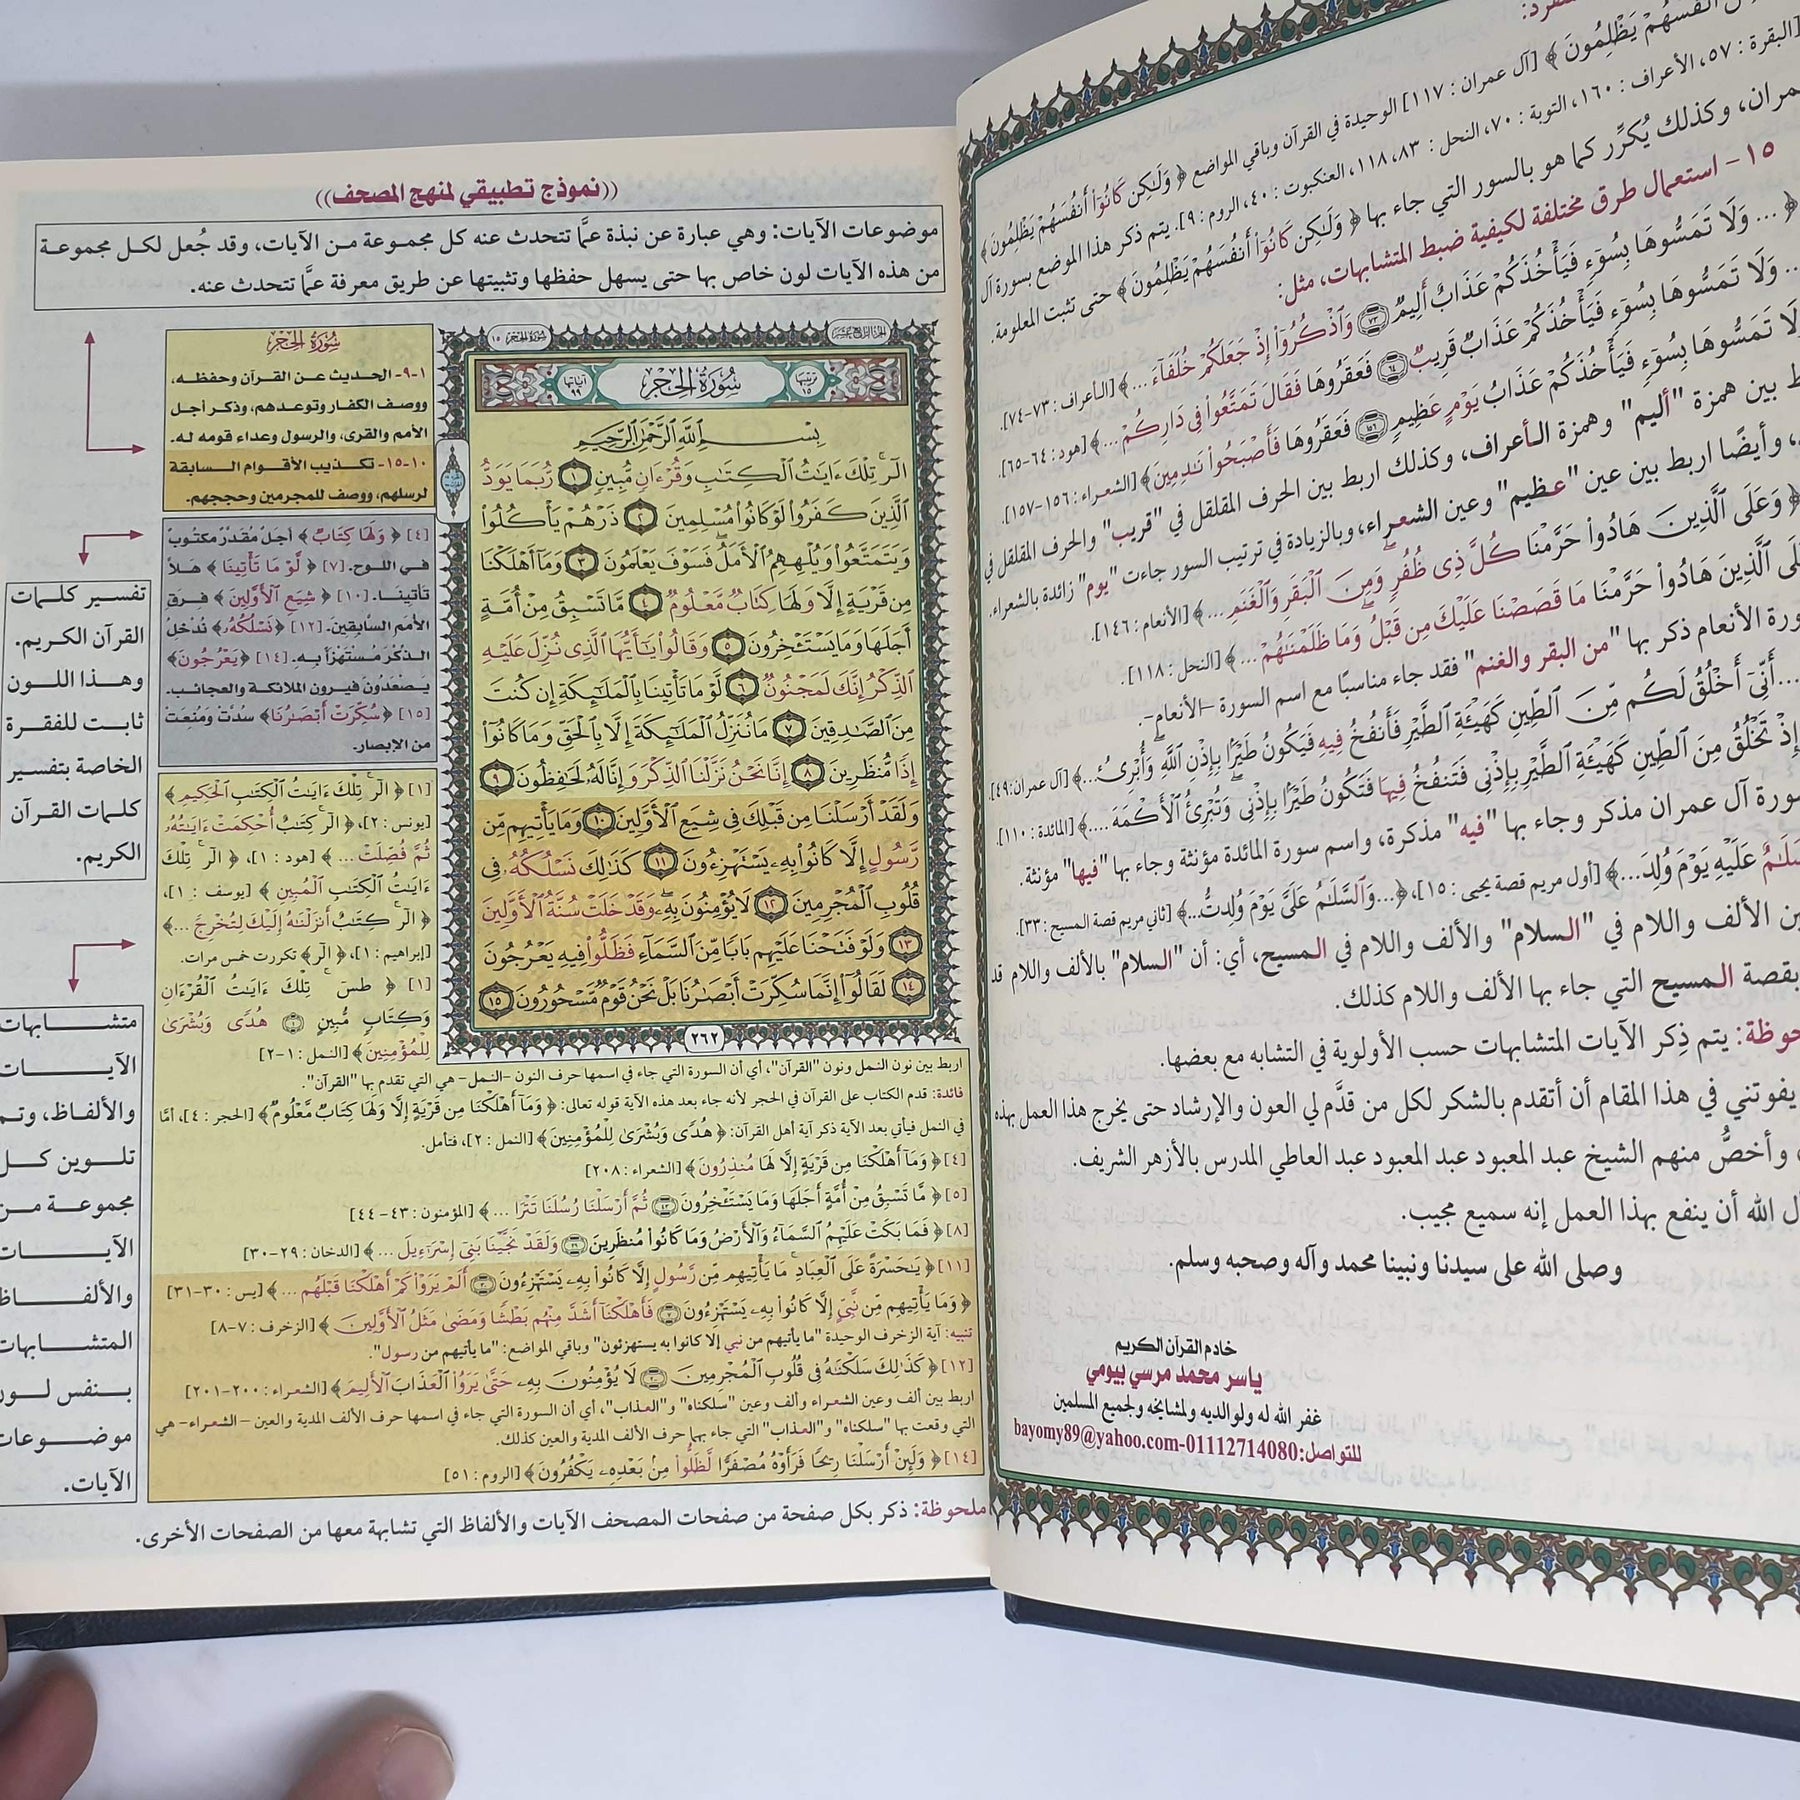 أنفسهم يظلمون ﴾ [آل عمران : ١١٧] الوحيدة في القرآن وباقي المواضع ﴿ وَلَٰكِن كَانُوٓا۟ أَنفُسَهُمْ يَظْلِمُونَ ﴾
[البقرة : ٥٧، الأعراف : ١٦٠، التوبة : ٧٠، النحل : ٨٣، ١١٨، العنكبوت : ٤٠، الروم : ٩]. يتم ذكر هذا الموضع بسورة آل
عمران، وكذلك يُكرَّر كما هو بالسور التي جاء بها ﴿ وَلَٰكِن كَانُوٓا۟ أَنفُسَهُمْ يَظْلِمُونَ ﴾ حتى تثبت المعلومة.
١٥ - استعمال طرق مختلفة لكيفية ضبط المتشابهات، مثل:
﴿ ... وَلَا تَمَسُّوهَا بِسُوٓءٍ فَيَأْخُذَكُمْ عَذَابٌ أَلِيمٌ ٧٣ وَٱذْكُرُوٓا۟ إِذْ جَعَلَكُمْ خُلَفَآءَ ... ﴾ [الأعراف : ٧٣-٧٤].
... وَلَا تَمَسُّوهَا بِسُوٓءٍ فَيَأْخُذَكُمْ عَذَابٌ قَرِيبٌ ٦٤ فَعَقَرُوهَا فَقَالَ تَمَتَّعُوا۟ فِى دَارِكُمْ ... ﴾ [هود : ٦٤-٦٥].
لَا تَمَسُّوهَا بِسُوٓءٍ فَيَأْخُذَكُمْ عَذَابُ يَوْمٍ عَظِيمٍ ١٥٦ فَعَقَرُوهَا فَأَصْبَحُوا۟ نَٰدِمِينَ ﴾ [الشعراء : ١٥٦-١٥٧].
بين همزة "أليم" وهمزة الأعراف، وكذلك اربط بين الحرف المقلقل في "قريب" والحرف المقلقل في
، وأيضًا اربط بين عين "عظيم" وعين الشعراء، وبالزيادة في ترتيب السور جاءت "يوم" زائدة بالشعراء.
﴿ وَعَلَى ٱلَّذِينَ هَادُوا۟ حَرَّمْنَا كُلَّ ذِى ظُفُرٍ وَمِنَ ٱلْبَقَرِ وَٱلْغَنَمِ ... ﴾ [الأنعام : ١٤٦].
ٱلَّذِينَ هَادُوا۟ حَرَّمْنَا مَا قَصَصْنَا عَلَيْكَ مِن قَبْلُ وَمَا ظَلَمْنَٰهُمْ ... ﴾ [النحل : ١١٨].
الأنعام ذكر بها "من البقر والغنم" فقد جاء مناسبًا مع اسم السورة -الأنعام-.
...أَنِّىٓ أَخْلُقُ لَكُم مِّنَ ٱلطِّينِ كَهَيْـَٔةِ ٱلطَّيْرِ فَأَنفُخُ فِيهِ فَيَكُونُ طَيْرًۢا بِإِذْنِ ٱللَّهِ وَأُبْرِئُ... ﴾ [آل عمران: ٤٩].
إِذْ تَخْلُقُ مِنَ ٱلطِّينِ كَهَيْـَٔةِ ٱلطَّيْرِ بِإِذْنِى فَتَنفُخُ فِيهَا فَتَكُونُ طَيْرًۢا بِإِذْنِى وَتُبْرِئُ ٱلْأَكْمَهَ .... ﴾ [المائدة : ١١٠].
سورة آل عمران مذكر وجاء بها "فيه" مذكرة، واسم سورة المائدة مؤنثة وجاء بها "فيها" مؤنثة.
عَلَيْهِ يَوْمَ وُلِدَ... ﴾ [أول مريم قصة يحيى : ١٥]، ﴿...وَٱلسَّلَٰمُ عَلَىَّ يَوْمَ وُلِدتُّ... ﴾ [ثاني مريم قصة المسيح : ٣٣].
الألف واللام في "السلام" والألف واللام في المسيح، أي: أن "السلام" بالألف واللام قد
بقصة المسيح التي جاء بها الألف واللام كذلك.
يتم ذِكر الآيات المتشابهات حسب الأولوية في التشابه مع بعضها.
يفوتني في هذا المقام أن أتقدم بالشكر لكل من قدَّم لي العون والإرشاد حتى يخرج هذا العمل بهذه
، وأخصُّ منهم الشيخ عبد المعبود عبد المعبود عبد العاطي المدرس بالأزهر الشريف.
الله أن ينفع بهذا العمل إنه سميع مجيب.
وصلى الله على سيدنا ونبينا محمد وآله وصحبه وسلم.
خادم القرآن الكريم
ياسر محمد مرسي بيومي
غفر الله له ولوالديه ولمشايخه ولجميع المسلمين
للتواصل:01112714080-bayomy89@yahoo.com
((نموذج تطبيقي لمنهج المصحف))
موضوعات الآيات: وهي عبارة عن نبذة عمَّا تتحدث عنه كل مجموعة من الآيات، وقد جُعل لكل مجموعة
من هذه الآيات لون خاص بها حتى يسهل حفظها وتثبيتها عن طريق معرفة عمَّا تتحدث عنه.
الجزء الرابع عشر
سورة الحجر ١٥
ترتيبها ١٥
سُورَةُ الحِجْرِ
آياتها ٩٩
بِسْمِ ٱللَّهِ ٱلرَّحْمَٰنِ ٱلرَّحِيمِ
الٓر تِلْكَ ءَايَٰتُ ٱلْكِتَٰبِ وَقُرْءَانٍ مُّبِينٍ ١ رُّبَمَا يَوَدُّ
ٱلَّذِينَ كَفَرُوا۟ لَوْ كَانُوا۟ مُسْلِمِينَ ٢ ذَرْهُمْ يَأْكُلُوا۟
وَيَتَمَتَّعُوا۟ وَيُلْهِهِمُ ٱلْأَمَلُ فَسَوْفَ يَعْلَمُونَ ٣ وَمَآ أَهْلَكْنَا
مِن قَرْيَةٍ إِلَّا وَلَهَا كِتَابٌ مَّعْلُومٌ ٤ مَّا تَسْبِقُ مِنْ أُمَّةٍ
أَجَلَهَا وَمَا يَسْتَـْٔخِرُونَ ٥ وَقَالُوا۟ يَٰٓأَيُّهَا ٱلَّذِى نُزِّلَ عَلَيْهِ
ٱلذِّكْرُ إِنَّكَ لَمَجْنُونٌ ٦ لَّوْ مَا تَأْتِينَا بِٱلْمَلَٰٓئِكَةِ إِن كُنتَ
مِنَ ٱلصَّٰدِقِينَ ٧ مَا نُنَزِّلُ ٱلْمَلَٰٓئِكَةَ إِلَّا بِٱلْحَقِّ وَمَا كَانُوٓا۟
إِذًا مُّنظَرِينَ ٨ إِنَّا نَحْنُ نَزَّلْنَا ٱلذِّكْرَ وَإِنَّا لَهُۥ لَحَٰفِظُونَ ٩
وَلَقَدْ أَرْسَلْنَا مِن قَبْلِكَ فِى شِيَعِ ٱلْأَوَّلِينَ ١٠ وَمَا يَأْتِيهِم مِّن
رَّسُولٍ إِلَّا كَانُوا۟ بِهِۦ يَسْتَهْزِءُونَ ١١ كَذَٰلِكَ نَسْلُكُهُۥ فِى
قُلُوبِ ٱلْمُجْرِمِينَ ١٢ لَا يُؤْمِنُونَ بِهِۦ وَقَدْ خَلَتْ سُنَّةُ ٱلْأَوَّلِينَ
١٣ وَلَوْ فَتَحْنَا عَلَيْهِم بَابًا مِّنَ ٱلسَّمَآءِ فَظَلُّوا۟ فِيهِ يَعْرُجُونَ
١٤ لَقَالُوٓا۟ إِنَّمَا سُكِّرَتْ أَبْصَٰرُنَا بَلْ نَحْنُ قَوْمٌ مَّسْحُورُونَ ١٥
٢٦٢
سُورَةُ الحِجْرِ
١-٩- الحديث عن القرآن وحفظه،
ووصف الكفار وتوعدهم، وذكر أجل
الأمم والقرى، والرسول وعداء قومه له.
١٠-١٥- تكذيب الأقوام السابقة
لرسلهم، ووصف للمجرمين وحججهم.
[٤] ﴿ وَلَهَا كِتَابٌ ﴾ أجل مُقدَّرٌ مكتوب
في اللوح. [٧] ﴿ لَّوْ مَا تَأْتِينَا ﴾ هَلاَّ
تأتينا. [١٠] ﴿ شِيَعِ ٱلْأَوَّلِينَ ﴾ فِرقِ
الأمم السَّابقين. [١٢] ﴿نَسْلُكُهُۥ﴾ نُدْخلُ
الذكْرَ مُسْتهْزَأً به. [١٤] ﴿يَعْرُجُونَ﴾
يصْعَدُون فيرون الملائكة والعجائب.
[١٥] ﴿سُكِّرَتْ أَبْصَٰرُنَا﴾ سُدَّتْ ومُنعَتْ
من الإبصار.
[١] ﴿ الٓر تِلْكَ ءَايَٰتُ ٱلْكِتَٰبِ ٱلْحَكِيمِ ﴾
[يونس : ٢]، ﴿ الٓر كِتَٰبٌ أُحْكِمَتْ ءَايَٰتُهُۥ
ثُمَّ فُصِّلَتْ ... ﴾ [هود : ١]، ﴿ الٓر تِلْكَ
ءَايَٰتُ ٱلْكِتَٰبِ ٱلْمُبِينِ ﴾ [يوسف : ١]،
﴿ الٓر كِتَٰبٌ أَنزَلْنَٰهُ إِلَيْكَ لِتُخْرِجَ ...﴾
[إبراهيم : ١]، ﴿ الٓر﴾ تكررت خمس مرات.
[١] ﴿ طسٓ تِلْكَ ءَايَٰتُ ٱلْقُرْءَانِ
وَكِتَابٍ مُّبِينٍ ١ هُدًى وَبُشْرَىٰ
لِلْمُؤْمِنِينَ﴾ [النمل : ١-٢]
اربط بين نون النمل ونون "القرآن"، أي أن السورة التي جاء في اسمها حرف النون -النمل- هي التي تقدم بها "القرآن".
فائدة: قدم الكتاب على القرآن في الحجر لأنه جاء بعد هذه الآية قوله تعالى: ﴿ وَمَآ أَهْلَكْنَا مِن قَرْيَةٍ إِلَّا وَلَهَا كِتَابٌ مَّعْلُومٌ ﴾ [الحجر : ٤]، أمَّا
في النمل فيأتي بعد الآية ذكر آية أهل القرآن: ﴿ هُدًى وَبُشْرَىٰ لِلْمُؤْمِنِينَ﴾ [النمل : ٢]، فتأمل.
[٤] ﴿ وَمَآ أَهْلَكْنَا مِن قَرْيَةٍ إِلَّا لَهَا مُنذِرُونَ﴾ [الشعراء : ٢٠٨]
[٥] ﴿ مَّا تَسْبِقُ مِنْ أُمَّةٍ أَجَلَهَا وَمَا يَسْتَـْٔخِرُونَ ٤٣ ثُمَّ أَرْسَلْنَا رُسُلَنَا تَتْرَا ... ﴾ [المؤمنون : ٤٣-٤٤]
[٨] ﴿ فَمَا بَكَتْ عَلَيْهِمُ ٱلسَّمَآءُ وَٱلْأَرْضُ وَمَا كَانُوا۟ مُنظَرِينَ ٢٩ وَلَقَدْ نَجَّيْنَا بَنِىٓ إِسْرَٰٓءِيلَ ... ﴾ [الدخان : ٢٩-٣٠]
[١١] ﴿ يَٰحَسْرَةً عَلَى ٱلْعِبَادِ مَا يَأْتِيهِم مِّن رَّسُولٍ إِلَّا كَانُوا۟ بِهِۦ يَسْتَهْزِءُونَ ٣٠ أَلَمْ يَرَوْا۟ كَمْ أَهْلَكْنَا قَبْلَهُم ... ﴾ [يس : ٣٠-٣١]
﴿ وَمَا يَأْتِيهِم مِّن نَّبِىٍّ إِلَّا كَانُوا۟ بِهِۦ يَسْتَهْزِءُونَ ٧ فَأَهْلَكْنَآ أَشَدَّ مِنْهُم بَطْشًا وَمَضَىٰ مَثَلُ ٱلْأَوَّلِينَ ﴾ [الزخرف : ٧-٨]
تنبيه: آية الزخرف الوحيدة "ما يأتيهم من نبي إلا كانوا به يستهزئون" وباقي المواضع: "ما يأتيهم من رسول".
[١٢] ﴿ كَذَٰلِكَ سَلَكْنَٰهُ فِى قُلُوبِ ٱلْمُجْرِمِينَ ٢٠٠ لَا يُؤْمِنُونَ بِهِۦ حَتَّىٰ يَرَوُا۟ ٱلْعَذَابَ ٱلْأَلِيمَ ﴾ [الشعراء : ٢٠٠-٢٠١]
اربط بين ألف وعين الشعراء وألف وعين "سلكناه" و"العذاب"، أي أن السورة التي جاء في اسمها حرف الألف المدية والعين -الشعراء- هي
التي وقعت بها "سلكناه" و"العذاب" التي جاء بهما حرف الألف المدية والعين كذلك.
[١٤] ﴿ وَلَئِنْ أَرْسَلْنَا رِيحًا فَرَأَوْهُ مُصْفَرًّا لَّظَلُّوا۟ مِنۢ بَعْدِهِۦ يَكْفُرُونَ﴾ [الروم : ٥١]
ملحوظة: ذكر بكل صفحة من صفحات المصحف الآيات والألفاظ التي تشابهة معها من الصفحات الأخرى.
تفسير كلمات
القرآن الكريم.
وهذا اللون
ثابت للفقرة
الخاصة بتفسير
كلمات القرآن
الكريم.
متشابهات
الآيات
والألفاظ، وتم
تلوين كل
مجموعة من
الآيات
والألفاظ
المتشابهات
بنفس لون
موضوعات
الآيات.